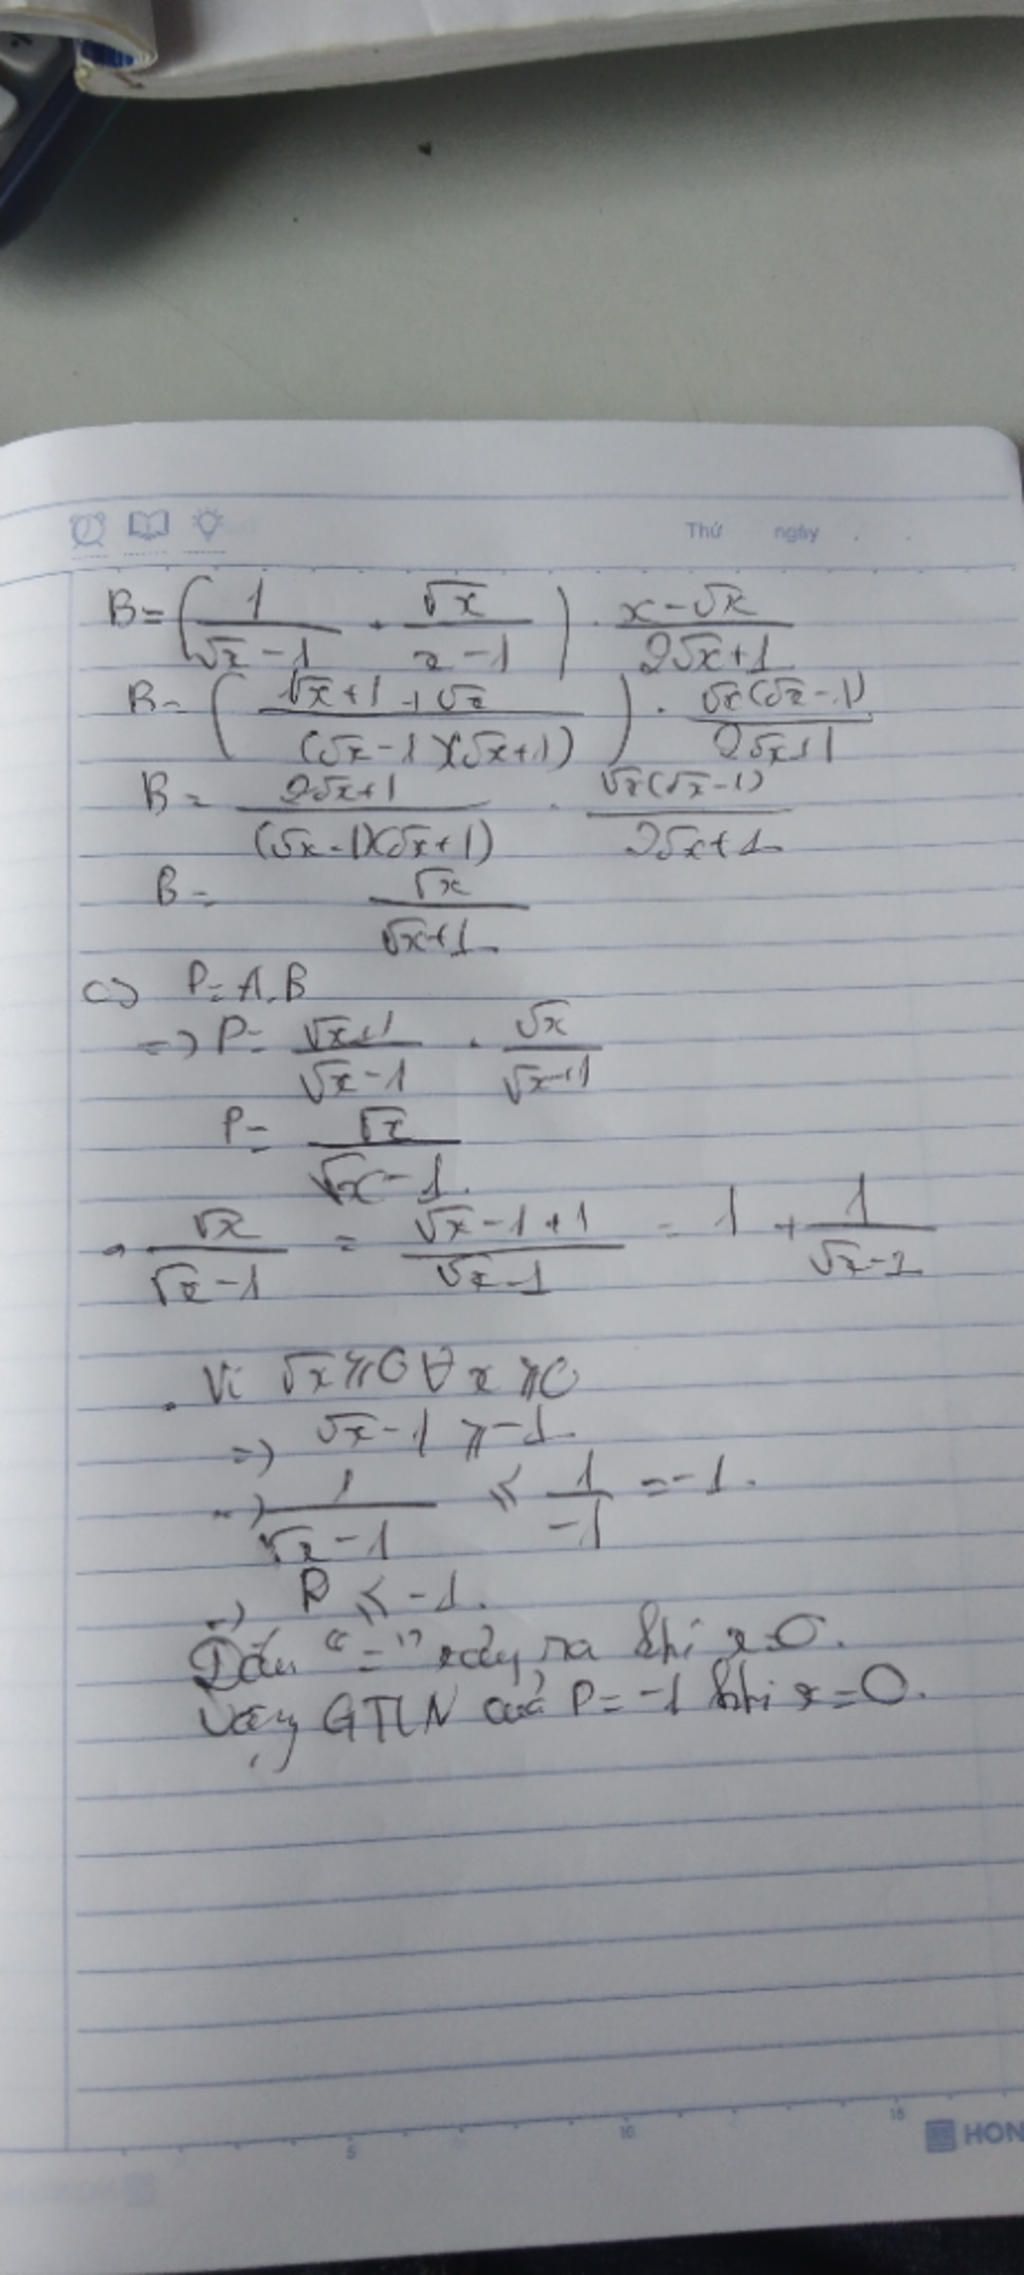 Thứ ngày
B = (1/(√x - 1) + √x/(x - 1)) . (x - √x)/(2√x + 1)
B = ((√x + 1 + √x)/((√x - 1)(√x + 1))) . √x(√x - 1)/(2√x + 1)
B = (2√x + 1)/((√x - 1)(√x + 1)) . √x(√x - 1)/(2√x + 1)
B = √x/(√x + 1)
c) P = A.B
=> P = (√x + 1)/(√x - 1) . √x/(√x + 1)
P = √x/(√x - 1)
√x/(√x - 1) = (√x - 1 + 1)/(√x - 1) = 1 + 1/(√x - 1)
. Vì √x ≥ 0 ∀ x ≥ 0
=> √x - 1 ≥ -1
=> 1/(√x - 1) ≤ 1/-1 = -1.
=> P ≤ -1.
Dấu "=" xảy ra khi x = 0.
Vậy GTLN của P = -1 khi x = 0.
5 10 15
HON